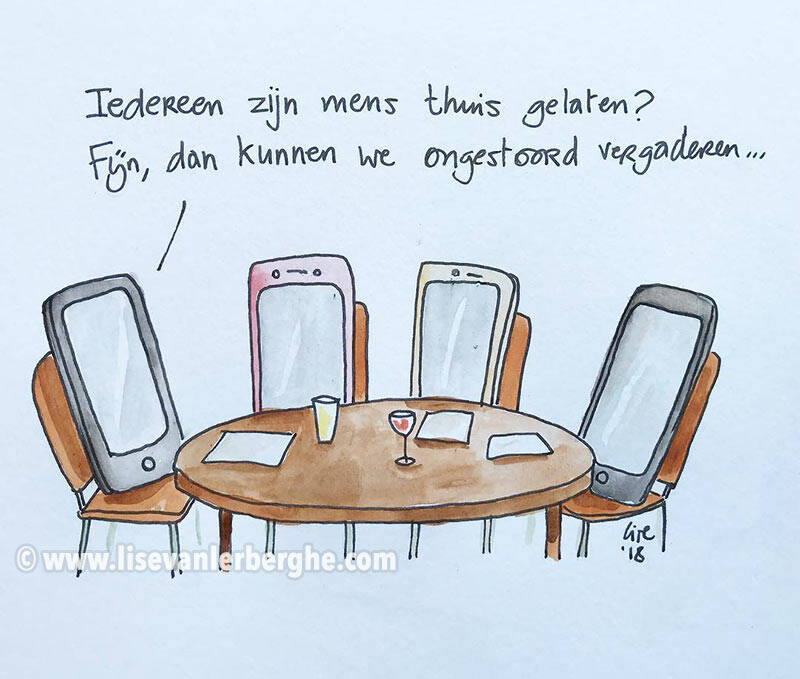 Iedereen zijn mens thuis gelaten?
Fijn, dan kunnen we ongestoord vergaderen...
lise
'18
© www.lisevanlerberghe.com